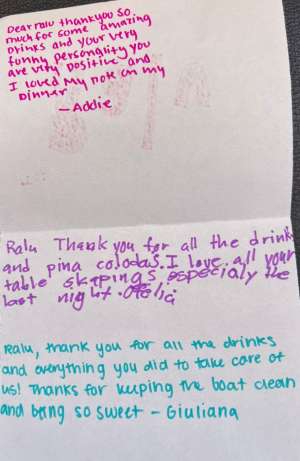 Dear ralu thankyou so
much for some amazing
Drinks and your very
funny personality you
are vity positive and
I loved My note on my
Dinner
- Addie
Ralu Thank you for all the drink
and pina colodas. I love all your
table skapings especialy the
last night. Ofelia
Ralu, thank you for all the drinks
and everything you did to take care of
us! Thanks for keeping the boat clean
and being so sweet - Giuliana